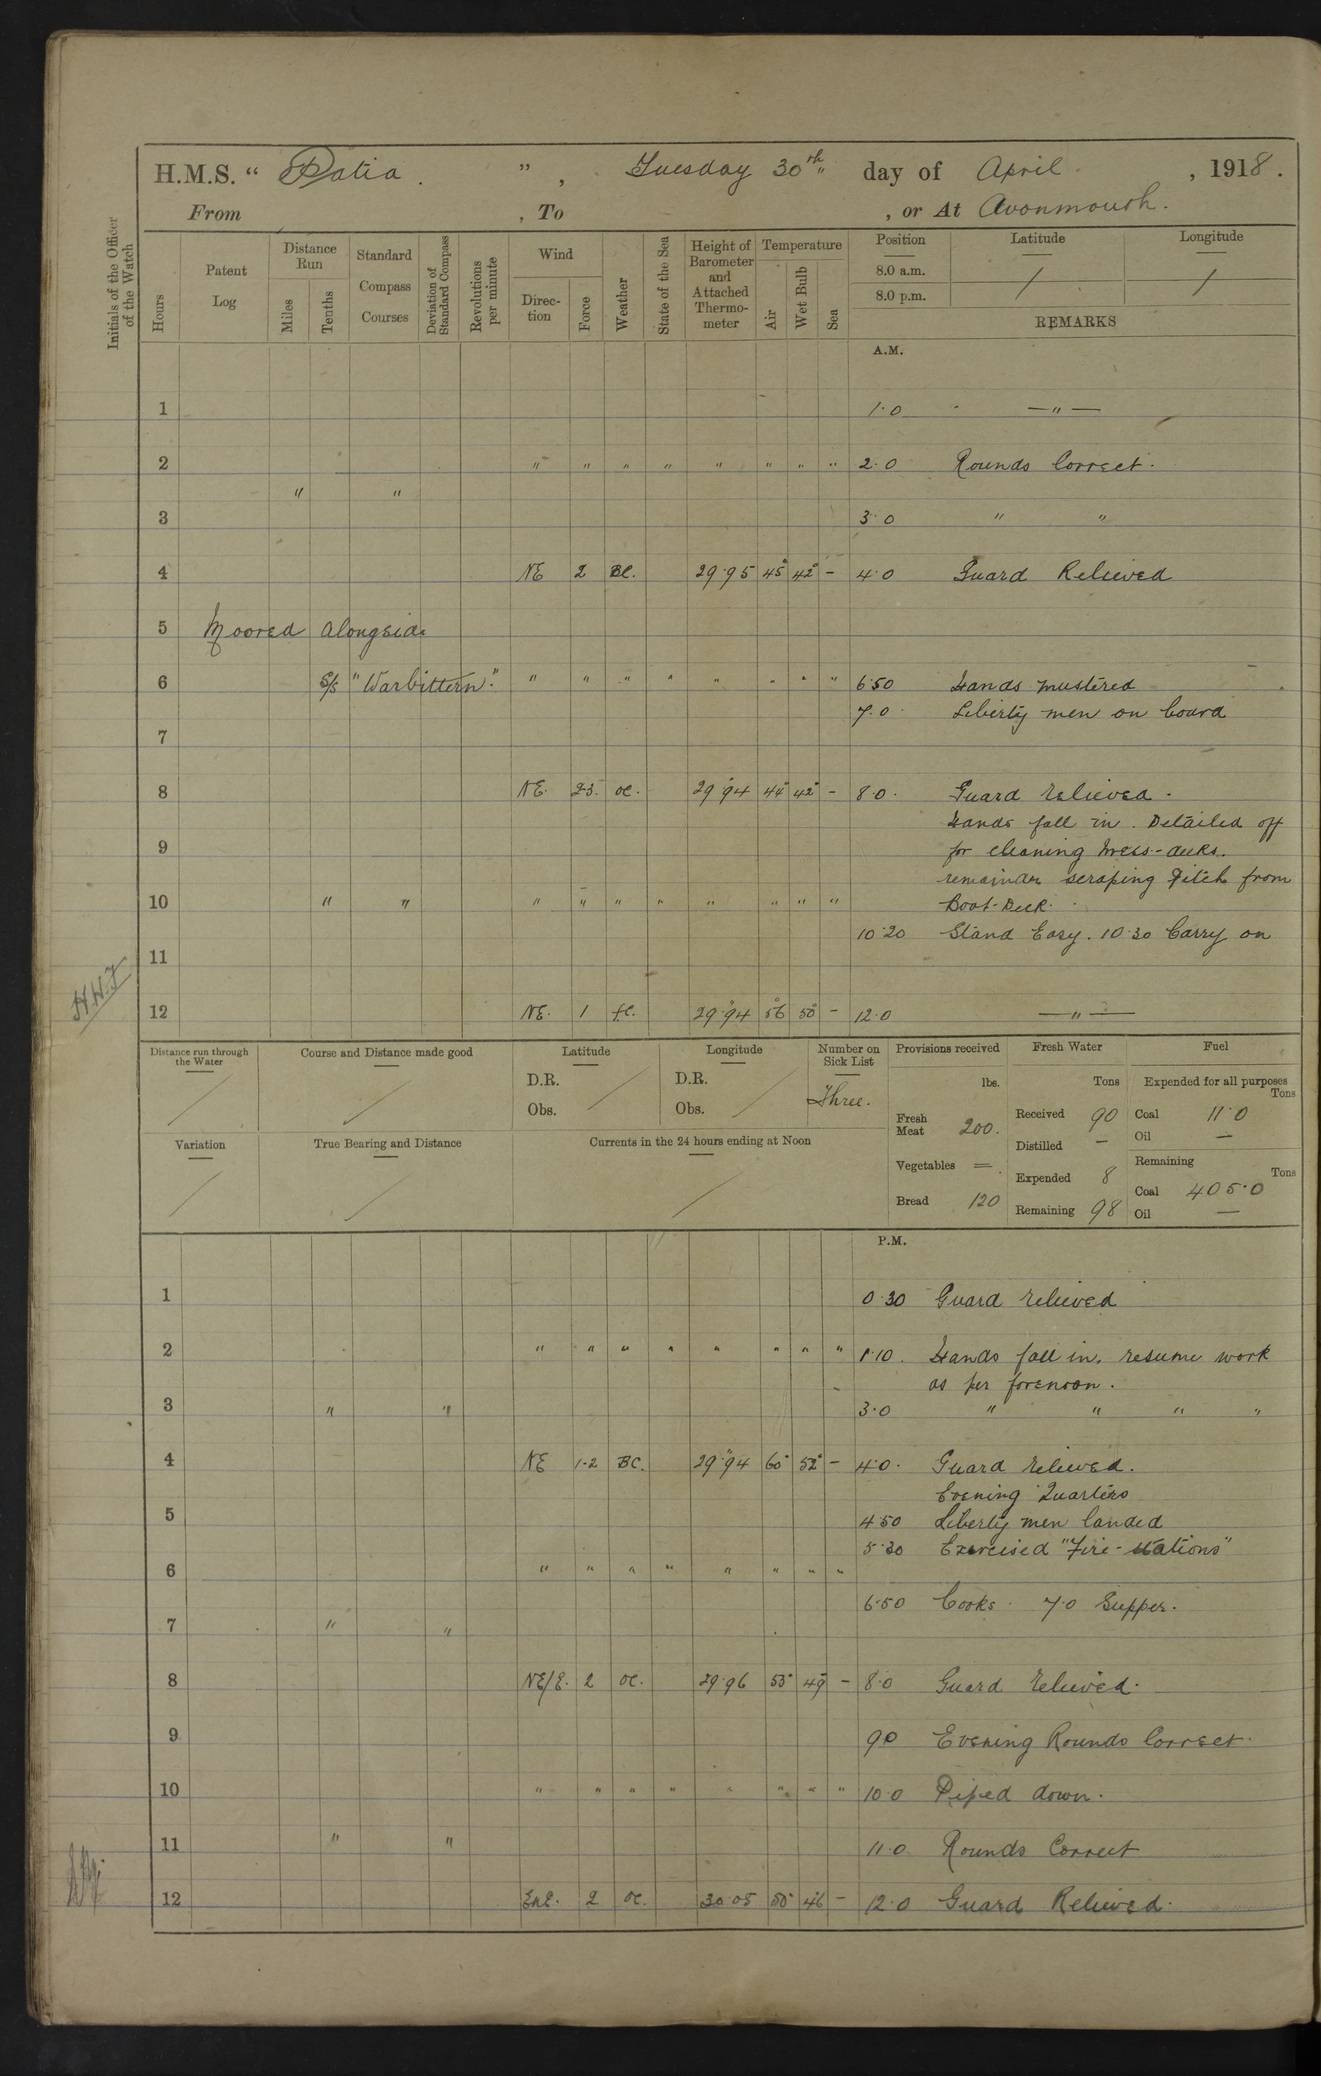 H.M.S. “ Patia . ” , Tuesday 30th „ day of April , 1918.
From , To , or At Avonmouth.
Initials of the Officer of the Watch
Hours
Patent Log
Distance Run
Miles
Tenths
Standard Compass Courses
Deviation of Standard Compass
Revolutions per minute
Wind
Direction
Force
Weather
State of the Sea
Height of Barometer and Attached Thermometer
Temperature
Air
Wet Bulb
Sea
Position Latitude Longitude
8.0 a.m. / /
8.0 p.m.
REMARKS
A.M.
1 1·0 — „ —
2 „ „ „ „ „ „ „ „ 2·0 Rounds Correct.
„ „
3 3·0 „ „
4 NE 2 BC. 29·95 45° 42° – 4·0 Guard Relieved
5 Moored alongside
6 S/S "Warbittern". „ „ „ „ „ „ „ „ 6·50 Hands mustered
7·0 Liberty men on board
7
8 NE. 2·3. oc. 29·94 44° 42° – 8·0. Guard relieved.
Hands fall in. Detailed off
9 for cleaning mess-decks.
remainder scraping Pitch from
10 „ „ „ „ „ „ „ „ „ „ Boat-Deck.
10·20 Stand Easy. 10·30 Carry on
11
H.H.J
12 NE. 1 fc. 29·94 56° 50° – 12·0 — „ —
Distance run through the Water
Course and Distance made good
Latitude
D.R.
Obs.
Longitude
D.R.
Obs.
Number on Sick List
Three.
Provisions received
lbs.
Fresh Meat 200.
Vegetables =.
Bread 120
Fresh Water
Tons
Received 90
Distilled —
Expended 8
Remaining 98
Fuel
Expended for all purposes
Tons
Coal 11·0
Oil —
Remaining
Tons
Coal 405·0
Oil —
Variation
True Bearing and Distance
Currents in the 24 hours ending at Noon
P.M.
1 0·30 Guard relieved
2 „ „ „ „ „ „ „ „ 1·10. Hands fall in. resume work
as per forenoon.
3 „ „ 3·0 „ „ „ „
4 NE 1-2 BC. 29·94 60° 52° – 4·0. Guard relieved.
Evening Quarters
5 4·50 Liberty men landed
5·30 Exercised "Fire-Stations"
6 „ „ „ „ „ „ „ „
6·50 Cooks. 7·0 Supper.
7 „ „
8 NE/E. 2 oc. 29·96 53° 49 – 8·0 Guard relieved.
9 9·0 Evening Rounds Correct.
10 „ „ „ „ „ „ „ „ 10·0 Piped down.
11 „ „ 11·0 Rounds Correct
12 EnE. 2 oc. 30·05 50° 46 – 12·0 Guard Relieved.